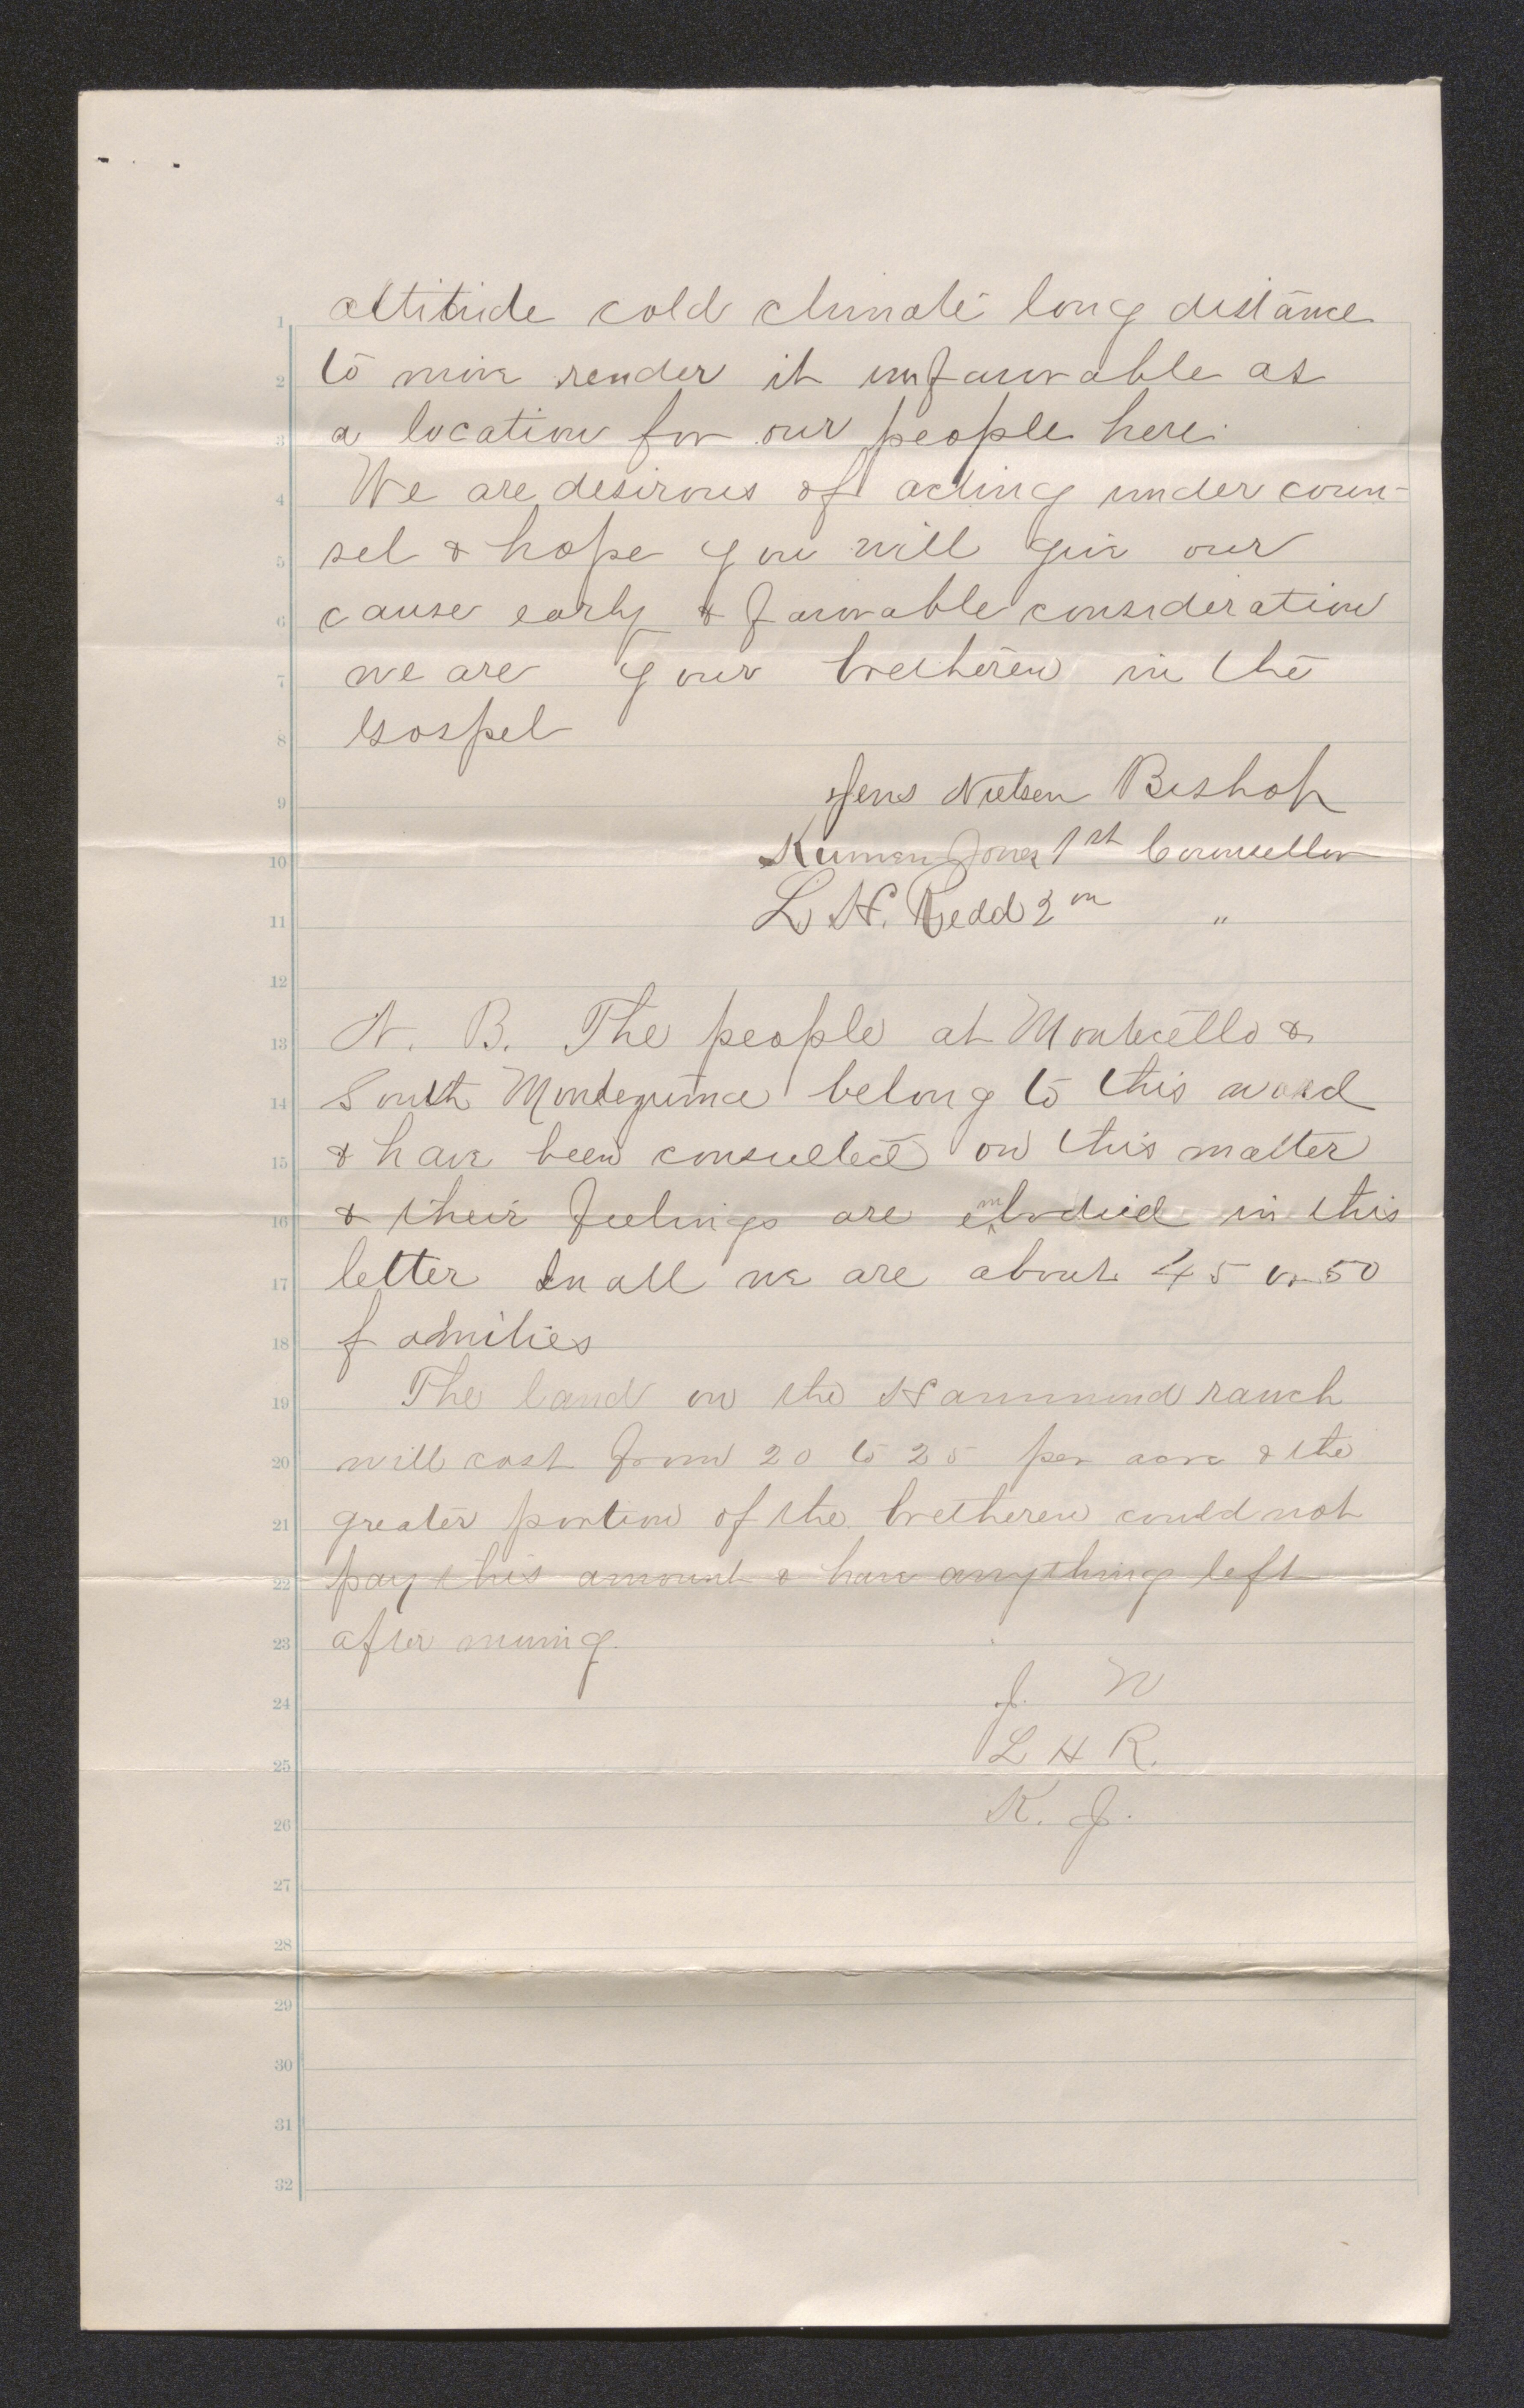 altitude cold climate long distance
to move render it unfavorable as
a location for our people here.
We are desirous of acting under coun-
sel & hope you will give our
cause early & favorable consideration
we are your bretheren in the
Gospel
Jens Nielsen Bishop
Kumen Jones 1st Counsellor
L H. Redd 2nn "
N. B. The people at Monticello &
South Montezuma belong to this ward
& have been consulted on this matter
& their feelings are embodied in this
letter In all we are about 45 or 50
families
The land on the Hammond ranch
will cost from 20 to 25 per acre & the
greater portion of the bretheren could not
pay this amount & have anything left
after moving.
J. N
L H R.
K. J.
1
2
3
4
5
6
7
8
9
10
11
12
13
14
15
16
17
18
19
20
21
22
23
24
25
26
27
28
29
30
31
32